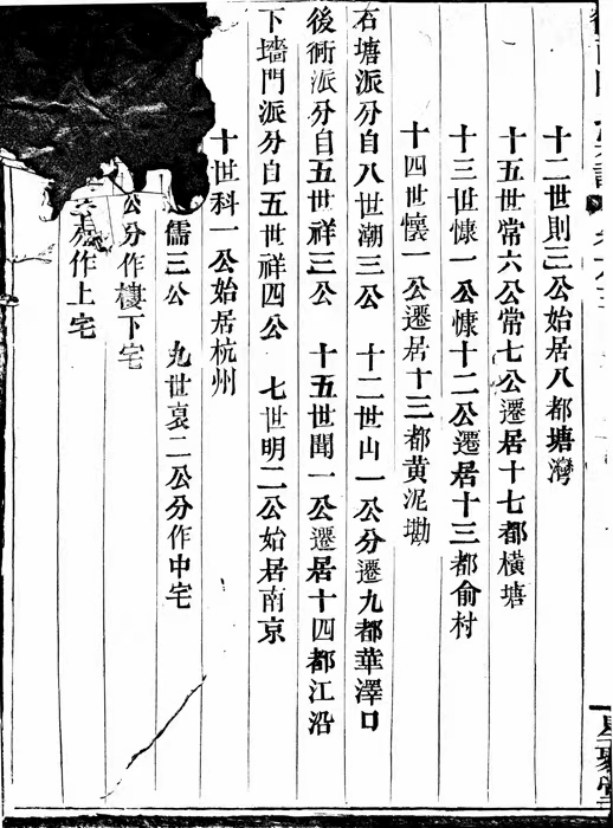 十二世則三公始居八都塘灣
十五世常六公常七公遷居十七都橫塘
十三世慷一公慷十二公遷居十三都俞村
十四世懷一公遷居十三都黄泥墈
石塘派分自八世潮三公　十二世山一公分遷九都華澤口
後衕派分自五世祥三公　十五世聞一公遷居十四都江沿
下墻門派分自五世祥四公　七世明二公始居南京
十世科一公始居杭州
儒三公　九世袞二公分作中宅
公分作樓下宅
作上宅